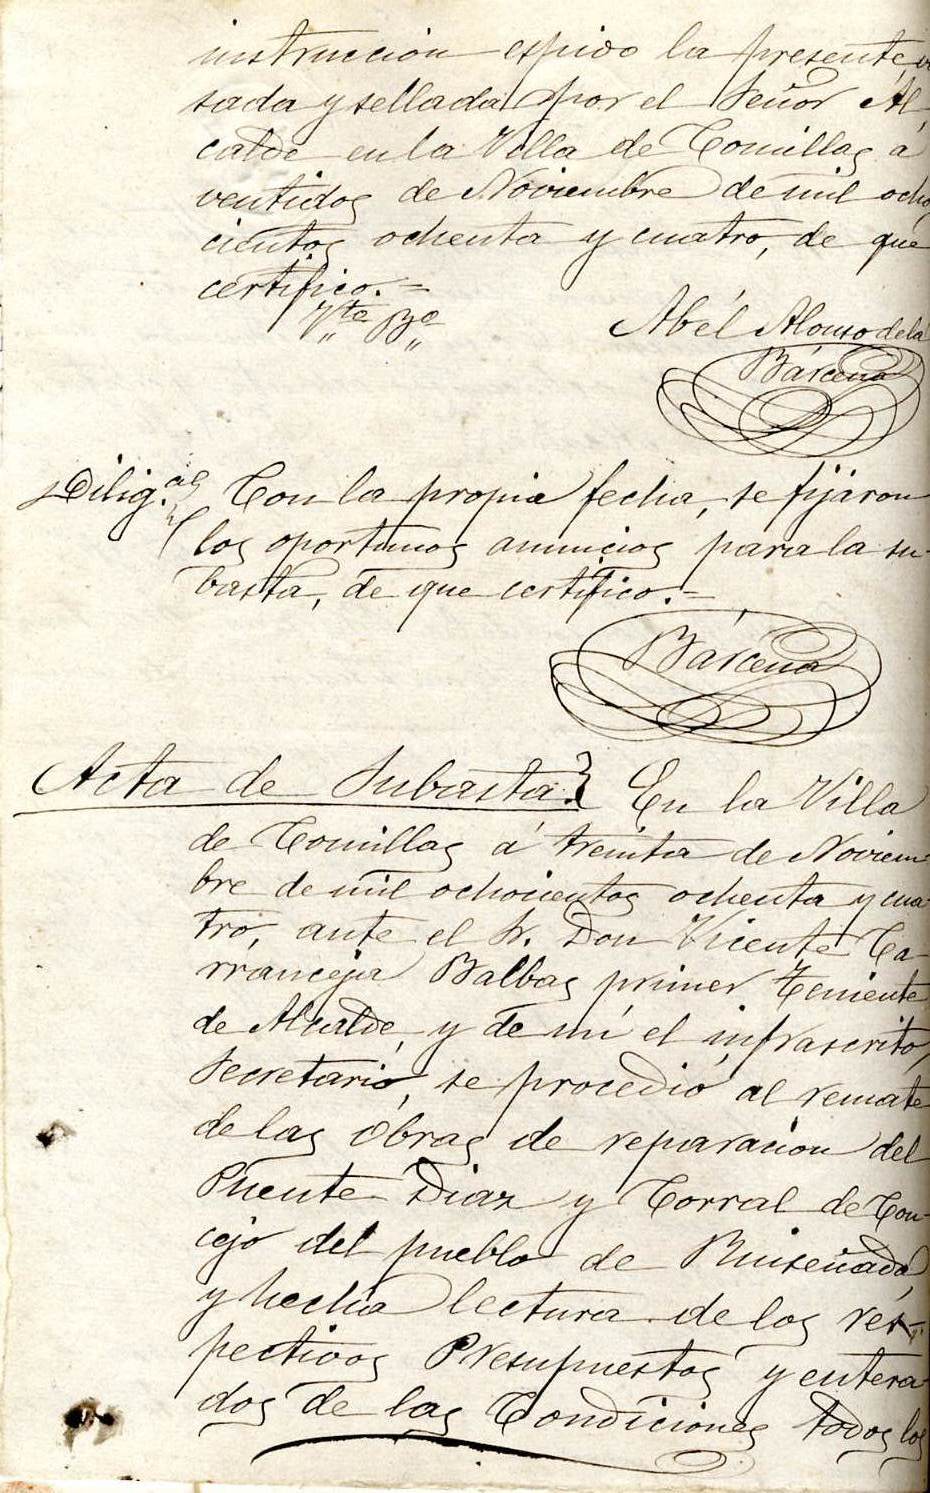 instrucción espido la presente, vi
sada y sellada por el Señor Al-
calde en la Villa de Comillas á
ventidos de Noviembre de mil ocho
cientos ochenta y cuatro, de que
certifico.=
Vto Bo
Abél Alonso de la
Bárcena
Dilig.cia Con la propia fecha, se fijaron
los oportunos anuncios para la su-
basta, de que certifico.=
Bárcena
Acta de Subasta. En la Villa
de Comillas á treinta de Noviem
bre de mil ochocientos ochenta y cua
tro, ante el Sr. Don Vicente Ca-
rranceja Balbas primer Teniente
de Alcalde, y de mí el infrascrito,
Secretario, se procedió al remate
de las Obras de reparacion del
Puente Diaz y Corral de Con-
cejo del pueblo de Ruiseñada,
y hecha lectura de los res-
pectivos Presupuestos y entera-
dos de las Condiciones todos los